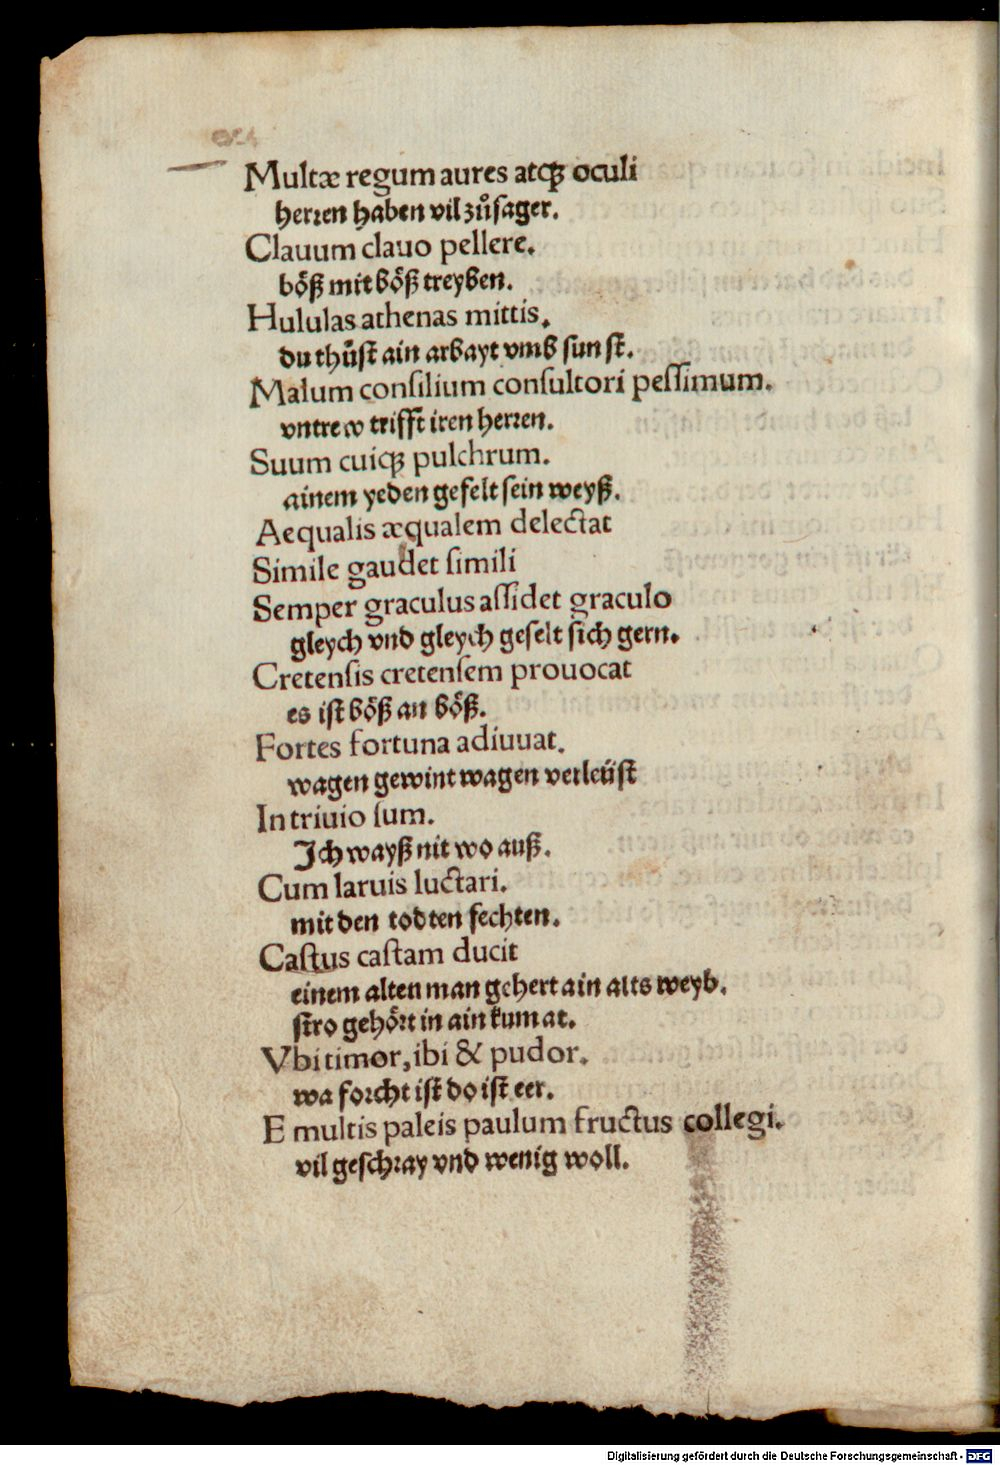 Multæ regum aures atqꝫ oculi
herꝛen haben vil zůsager.
Clauum clauo pellere.
bo̎ß mit bo̎ß treyben.
Hululas athenas mittis.
du thu̎st ain arbayt vmb sunst.
Malum consilium consultori pessimum.
vntrew trifft iren herꝛen.
Suum cuiqꝫ pulchrum.
ainem yeden gefelt sein weyß.
Aequalis æqualem delectat
Simile gaudet simili
Semper graculus assidet graculo
gleych vnd gleych geselt sich gern.
Cretensis cretensem prouocat
es ist bo̎ß an bo̎ß.
Fortes fortuna adiuuat.
wagen gewint wagen verleüst
In triuio sum.
Ich wayß nit wo auß.
Cum laruis luctari.
mit den todten fechten.
Castus castam ducit
einem alten man gehert ain alts weyb.
stro gehört in ain kumat.
Vbi timor, ibi & pudor.
wa foꝛcht ist do ist eer.
E multis paleis paulum fructus collegi.
vil geschꝛay vnd wenig woll.
Digitalisierung gefördert durch die Deutsche Forschungsgemeinschaft - DFG